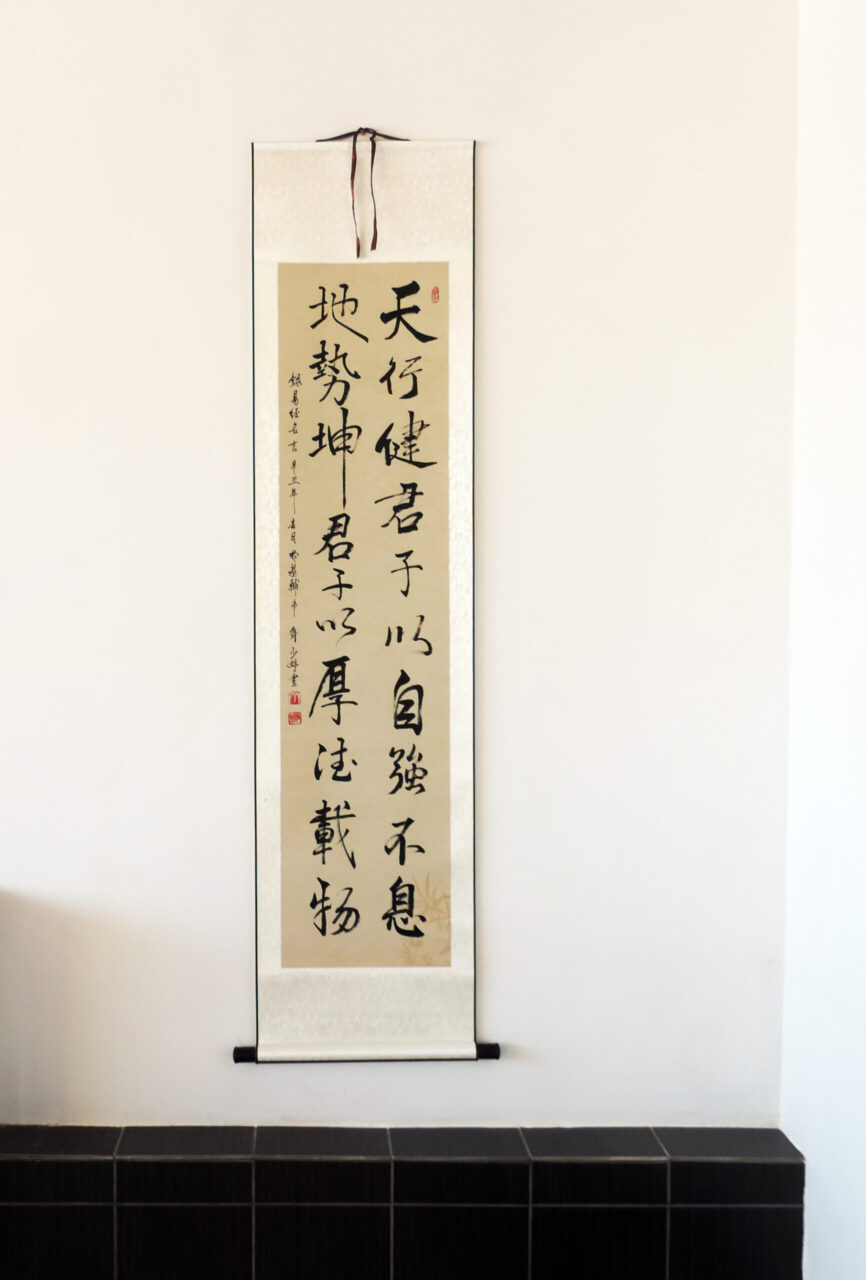 天行健君子以自強不息
地勢坤君子以厚德載物
錄易經名言辛丑年